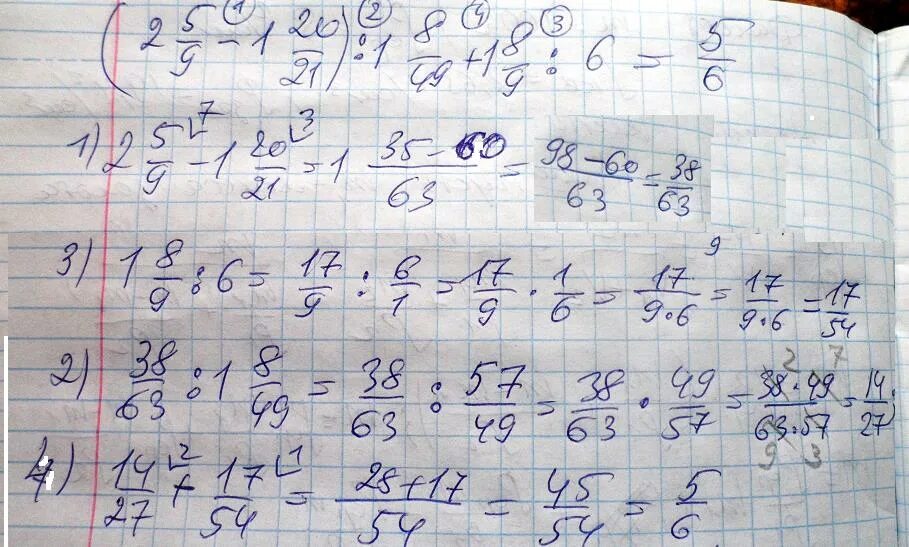 (2 5/9 - 1 20/21) : 1 8/49 + 1 8/9 : 6 = 5/6
1) 2 5/9 - 1 20/21 = 1 (35 - 60)/63 = (98 - 60)/63 = 38/63
3) 1 8/9 : 6 = 17/9 : 6/1 = 17/9 · 1/6 = 17/(9·6) = 17/(9·6) = 17/54
2) 38/63 : 1 8/49 = 38/63 : 57/49 = 38/63 · 49/57 = (38·49)/(63·57) = 14/27
4) 14/27 + 17/54 = (28+17)/54 = 45/54 = 5/6